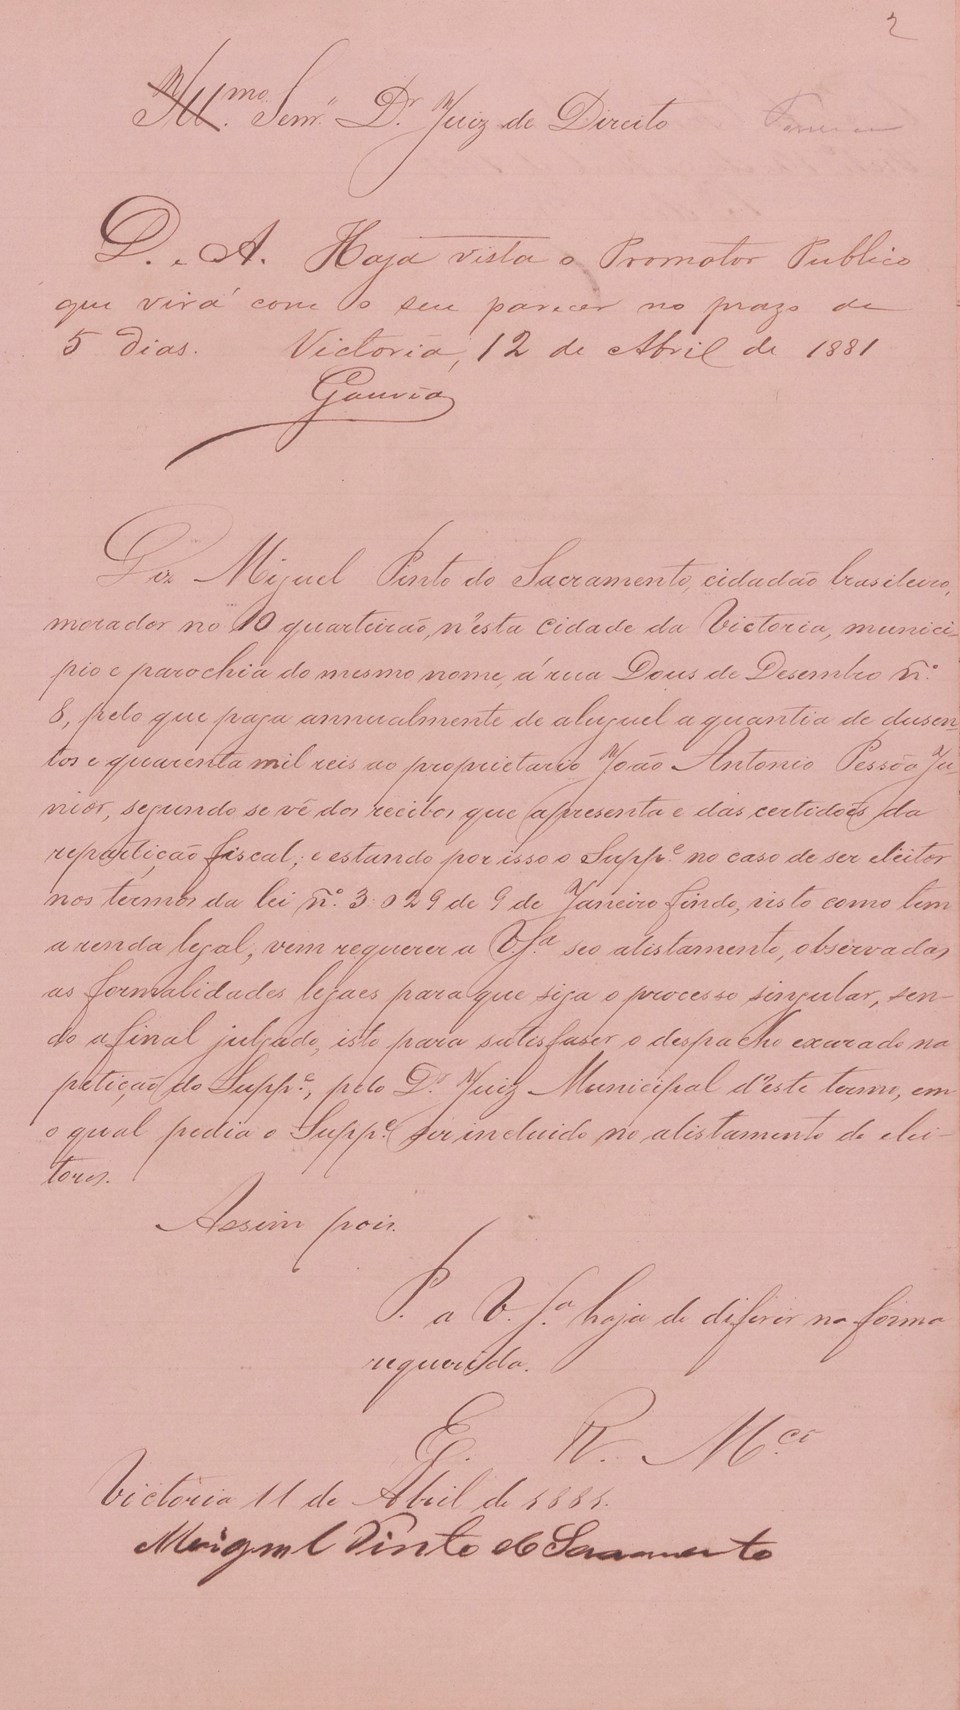 2
Ill.mo Senr. Dr. Juiz de Direito
D. e A. Haja vista o Promotor Publico
que virá com o seu parecer no prazo de
5 dias. Victoria, 12 de Abril de 1881
Gouvêa
Diz Miguel Pinto do Sacramento, cidadão brasileiro,
morador no 10 quarteirão, n'esta cidade da Victoria, munici-
pio e parochia do mesmo nome, á rua Dous de Desembro n.º
8, pelo que paga annualmente de aluguel a quantia de dusen-
tos e quarenta mil reis ao proprietario João Antonio Pessôa Ju-
nior, segundo se vê dos recibos que apresenta e das certidões da
repartição fiscal; e estando por isso o Suppe. no caso de ser eleitor
nos termos da lei n.º 3.029 de 9 de Janeiro findo, visto como tem
a renda legal, vem requerer a V.Sa. seo alistamento, observadas
as formalidades legaes para que siga o processo singular, sen-
do afinal julgado, isto para satisfaser o despacho exarado na
petição do Suppe., pelo Dr. Juiz Municipal d'este termo, em
o qual pedia o Suppe. ser incluido no alistamento de elei-
tores.
Assim pois.
P. a V.Sa. haja de diferir na forma
requerida.
E. R. Mce.
Victoria 11 de Abril de 1881.
Miguel Pinto do Sacramento